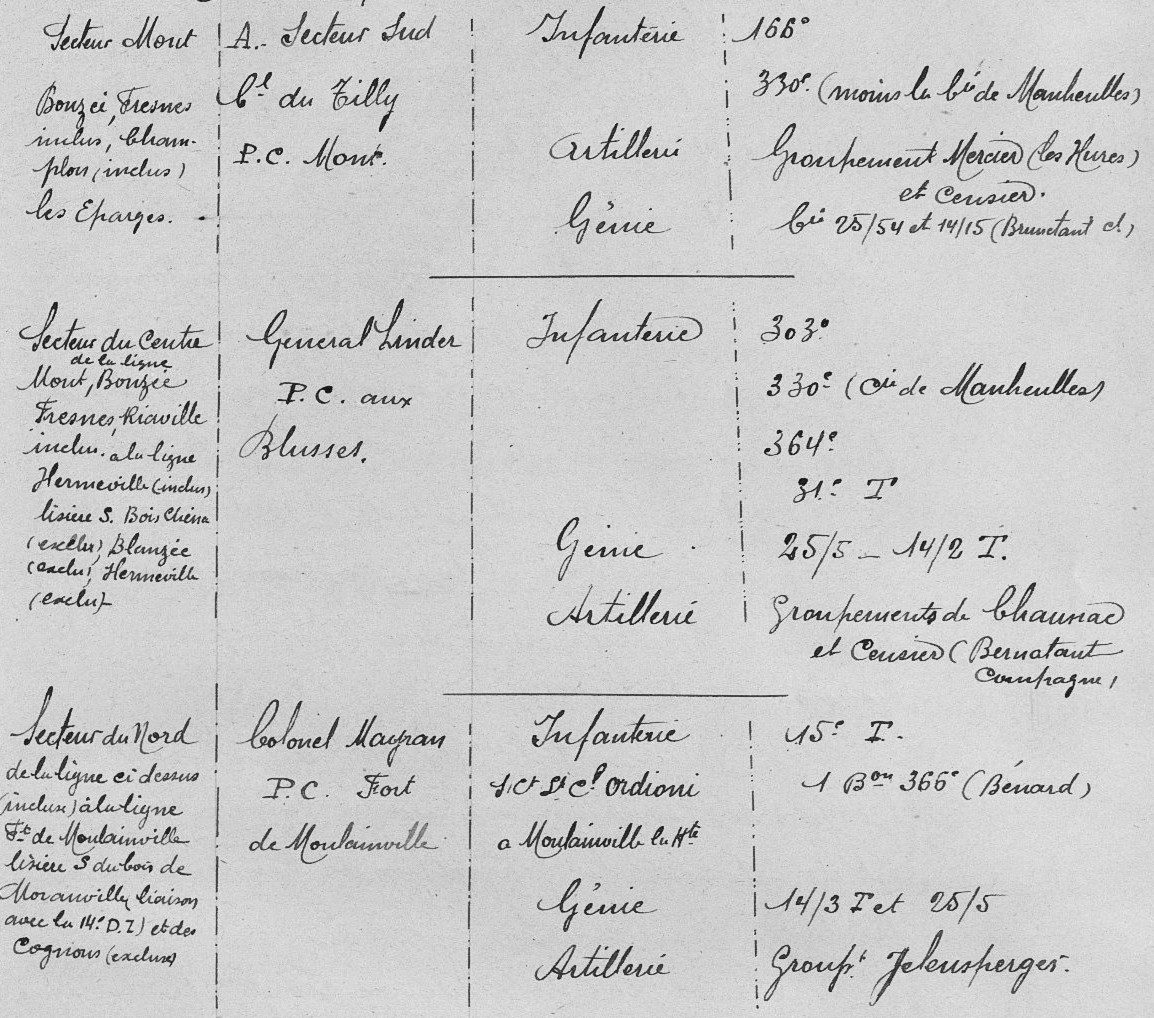 Secteur Mont
Bonzée, Fresnes
inclus, Cham-
plon (inclus)
les Eparges.
A.- Secteur Sud
Cel du Tilly
P.C. Mont.
Infanterie
166e
330e (moins la Cie de Manheulles)
Artillerie
Groupement Mercier (les Hures)
et Censier.
Génie
Cie 25/54 et 14/15 (
Secteur du Centre
de la ligne
Mont, Bonzée
Fresnes, Riaville
inclus. à la ligne
Hermeville (inclus)
lisière S. Bois Chéna
(exclu), Blanzée
(exclu), Hermeville
(exclu)
General Linder
P.C. aux
Blusses.
Infanterie
303e
330e (Cie de Manheulles)
364e
31e T
Génie
25/5 - 14/2 T.
Artillerie
Groupements de Chaunac
et Censier (Bernatant
Compagne)
Secteur du Nord
de la ligne ci dessus
(incluse) à la ligne
Ft de Moulainville
lisière S du bois de
Moranville, liaison
avec la 14e D.I) et des
Cognons (excluse)
Colonel Magnan
P.C. Fort
de Moulainville
Infanterie
Lt Cl Ordioni
a Moulainville la Hte
15e T.
1 Bon 366e (Bénard)
Génie
14/3 T et 25/5
Artillerie
Groupt Jelensperger.